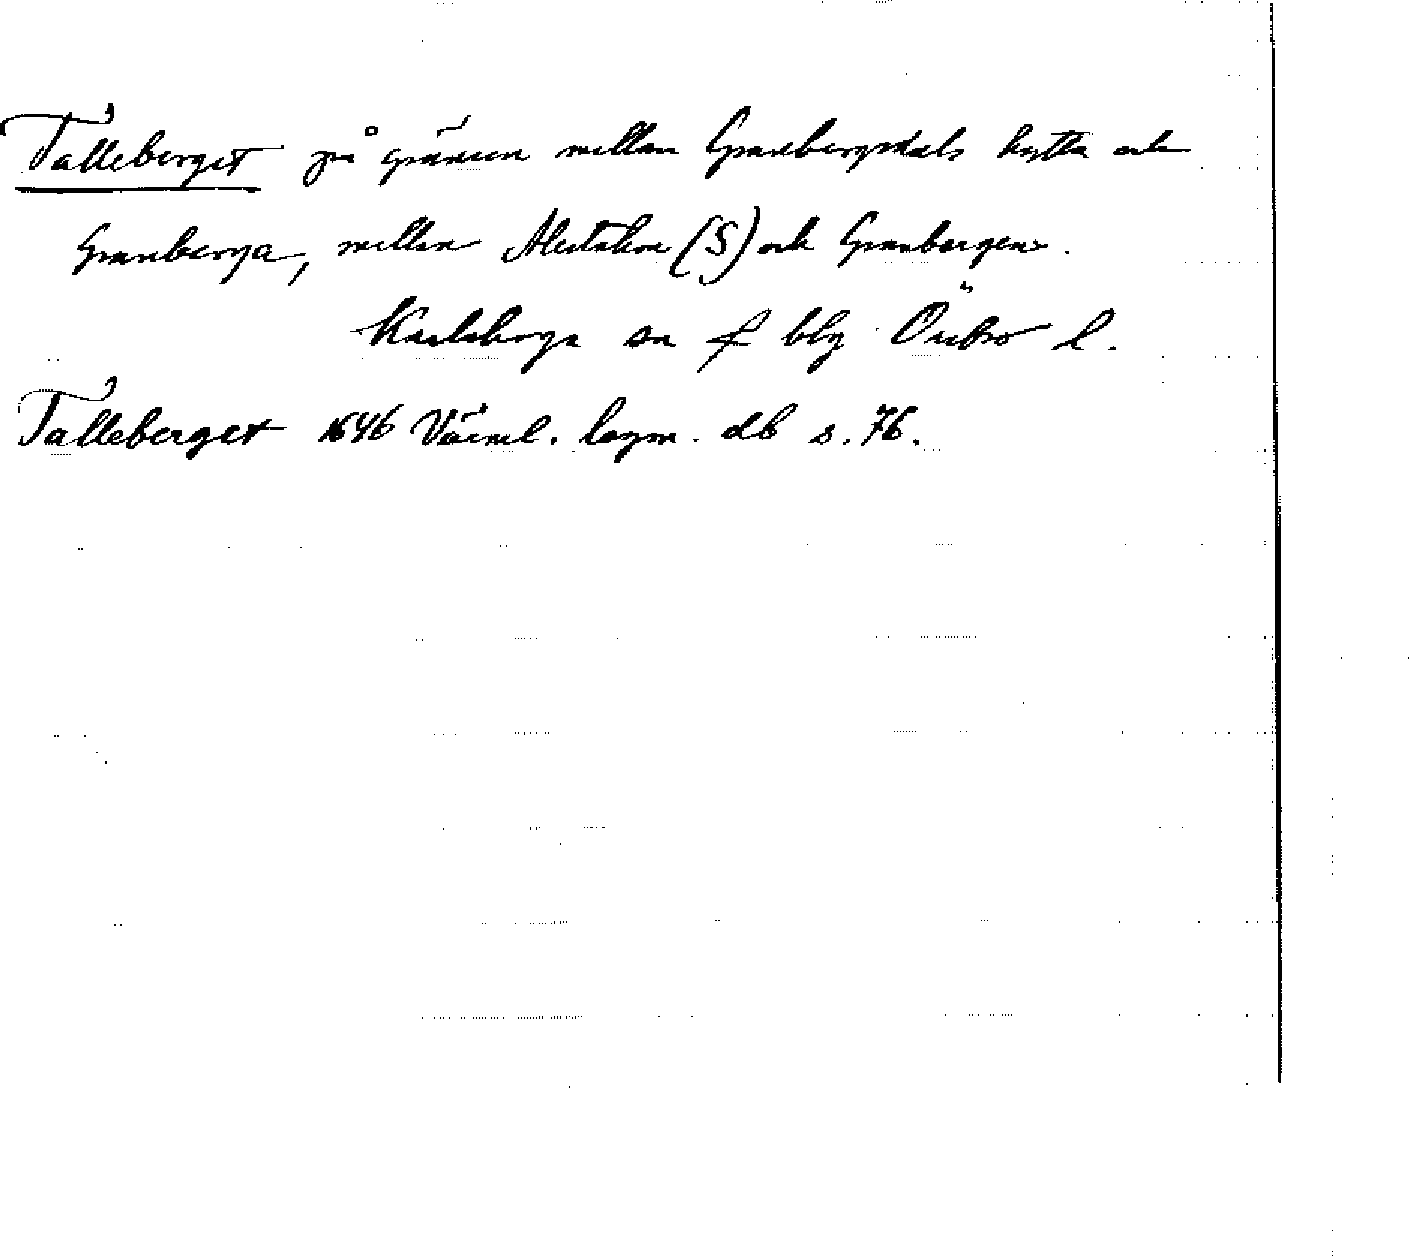 Talleberget på gränsen mellan Granbergsdals hytta och
Granberga, mellan (S) och Granbergen.
Karlskoga sn f blg Örebro l.
Talleberget 1646 Värml. lagm. db s. 76.